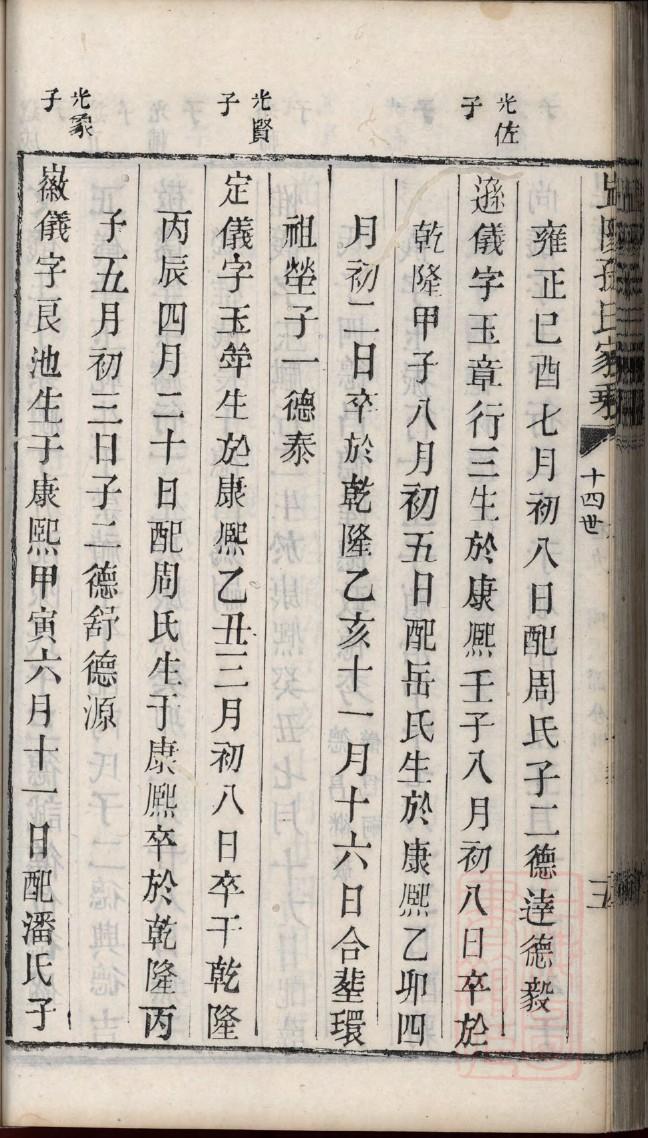 孫氏家乘
十四世
五
雍正己酉七月初八日配周氏子二德逵德毅
光佐子
遜儀字玉章行三生於康熈壬子八月初八日卒於
乾隆甲子八月初五日配岳氏生於康熈乙卯四
月初二日卒於乾隆乙亥十一月十六日合塟環
祖塋子一德泰
光賢子
定儀字玉斚生於康熈乙丑三月初八日卒于乾隆
丙辰四月二十日配周氏生于康熈卒於乾隆丙
子五月初三日子二德舒德源
光彖子
徽儀字艮池生于康熈甲寅六月十一日配潘氏子